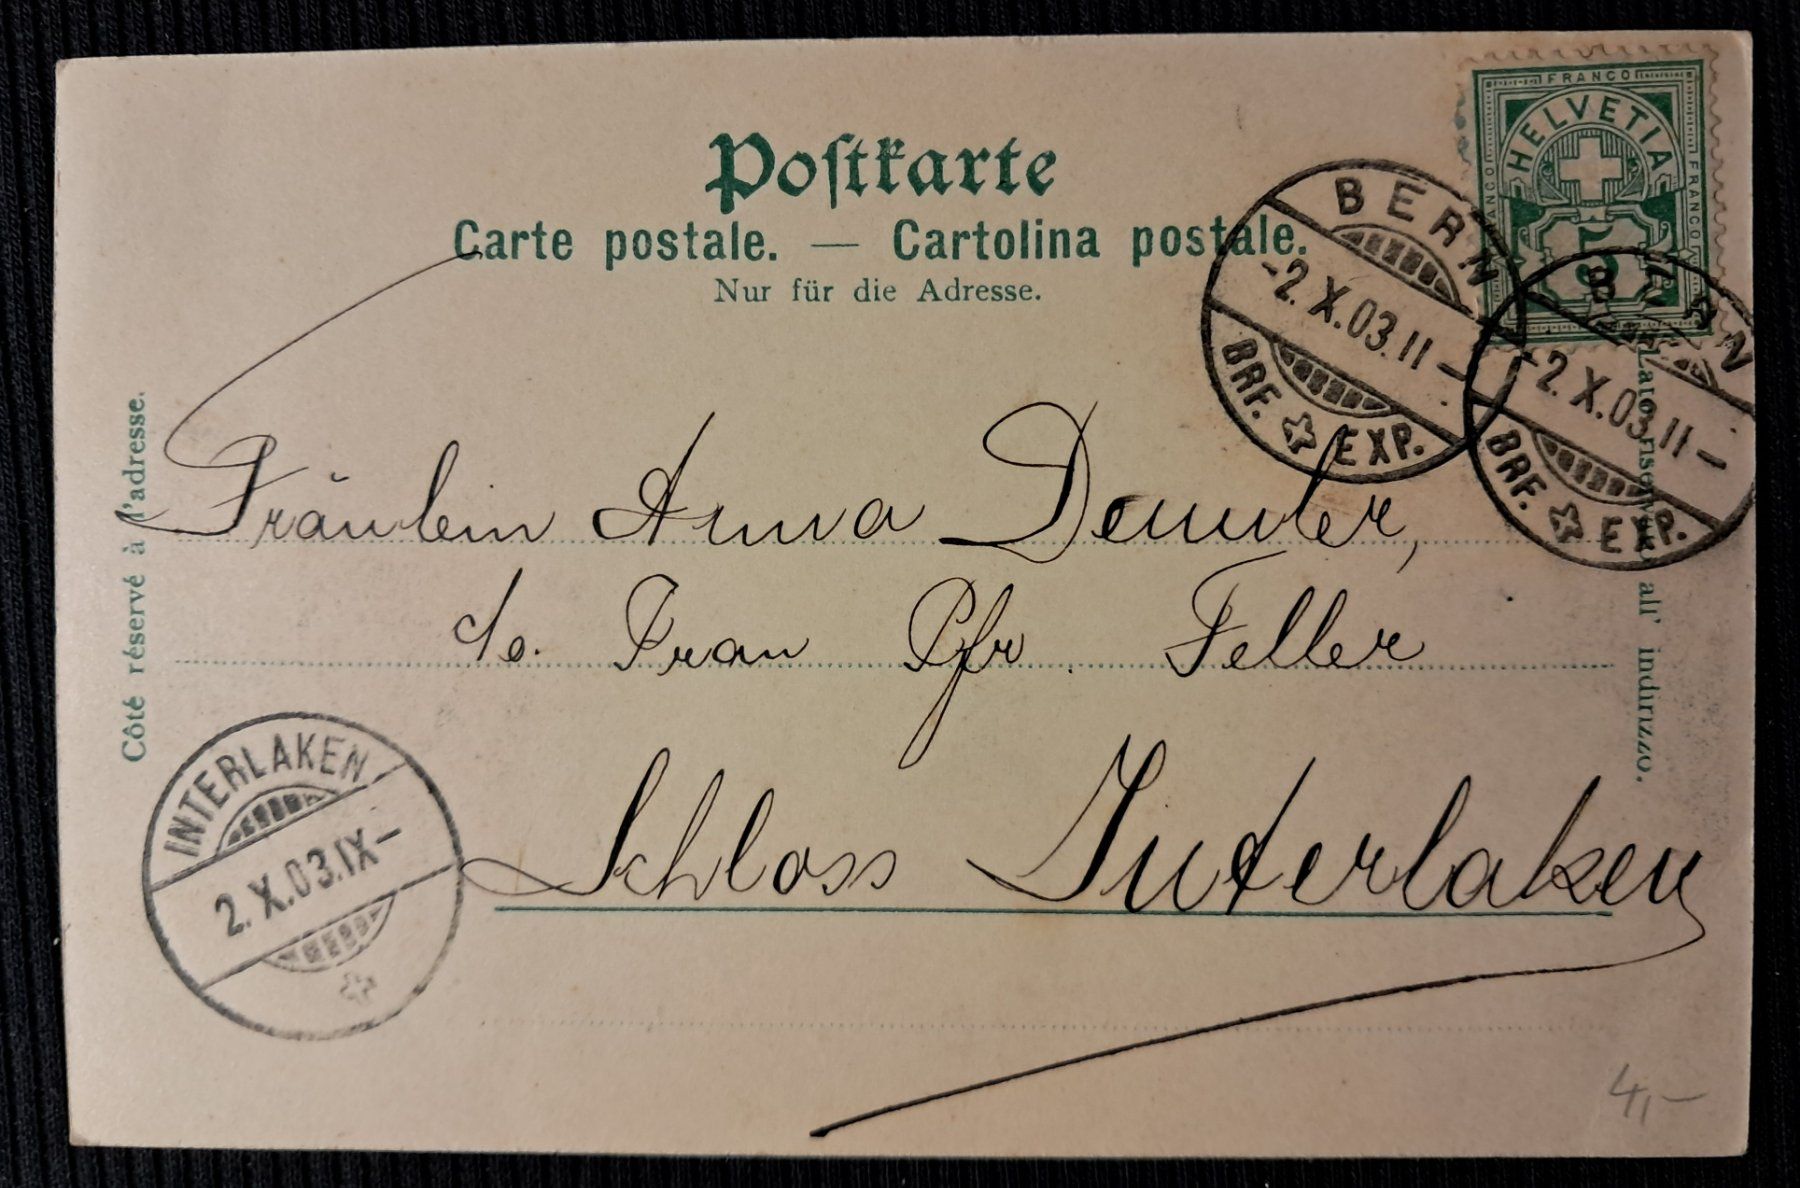 FRANCO
HELVETIA
FRANCO
FRANCO
5
Postkarte
Carte postale. — Cartolina postale.
Nur für die Adresse.
BERN
-2.X.03.11-
BRF. EXP.
BERN
-2.X.03.11-
BRF. EXP.
Côté réservé à l'adresse.
Lato riservato all' indirizzo.
Fräulein Anna
c/o. Frau Pfr. Feller
Schloss Interlaken
INTERLAKEN
2.X.03.IX-
4,-